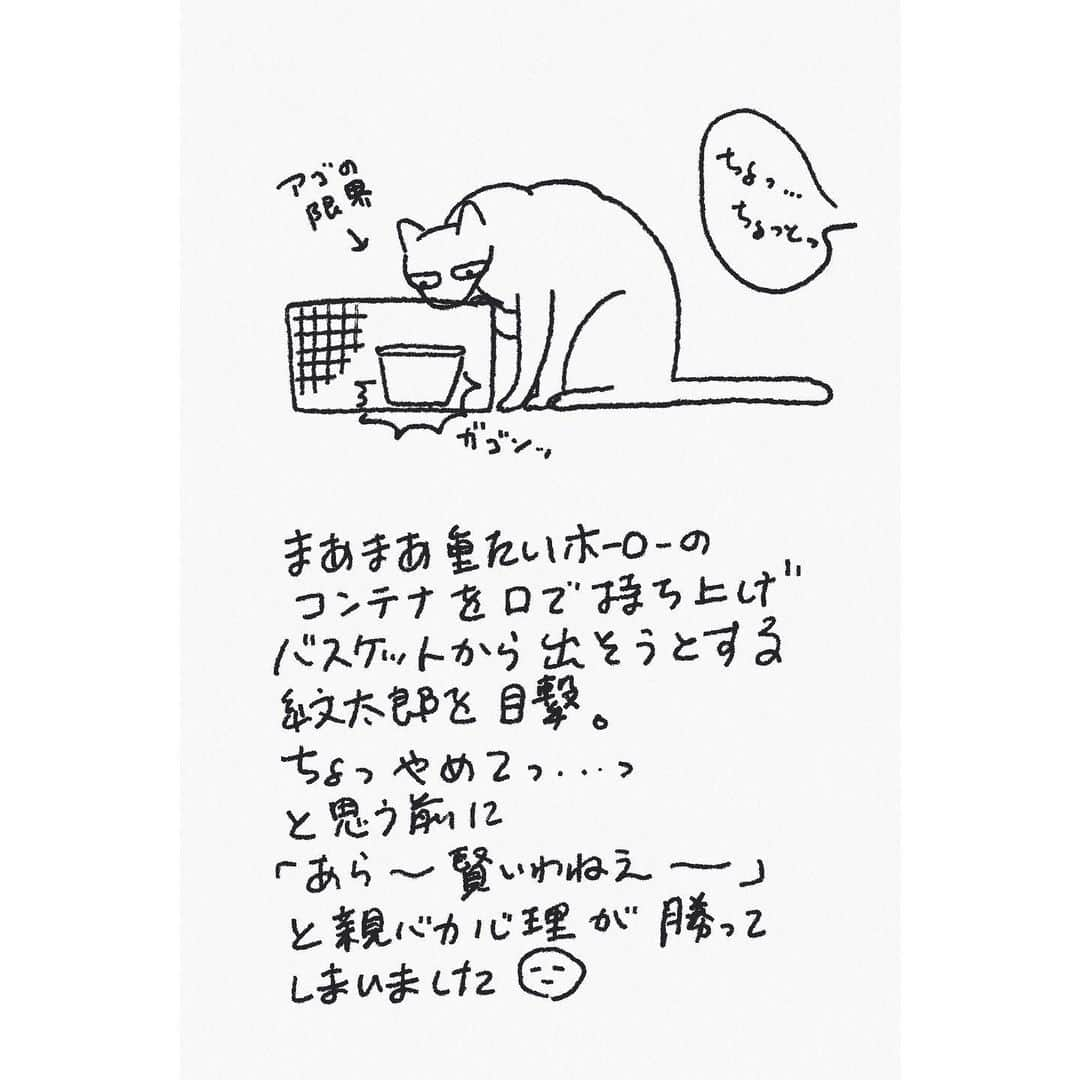 アゴの
限界
ちょっ…
ちょっとっ
ガゴンッ
まあまあ重たいホーローの
コンテナを口で持ち上げ
バスケットから出そうとする
紋太郎を目撃。
ちょっやめてっ...っ
と思う前に
「あら〜賢いわねえー」
と親バカ心理が勝って
しまいました